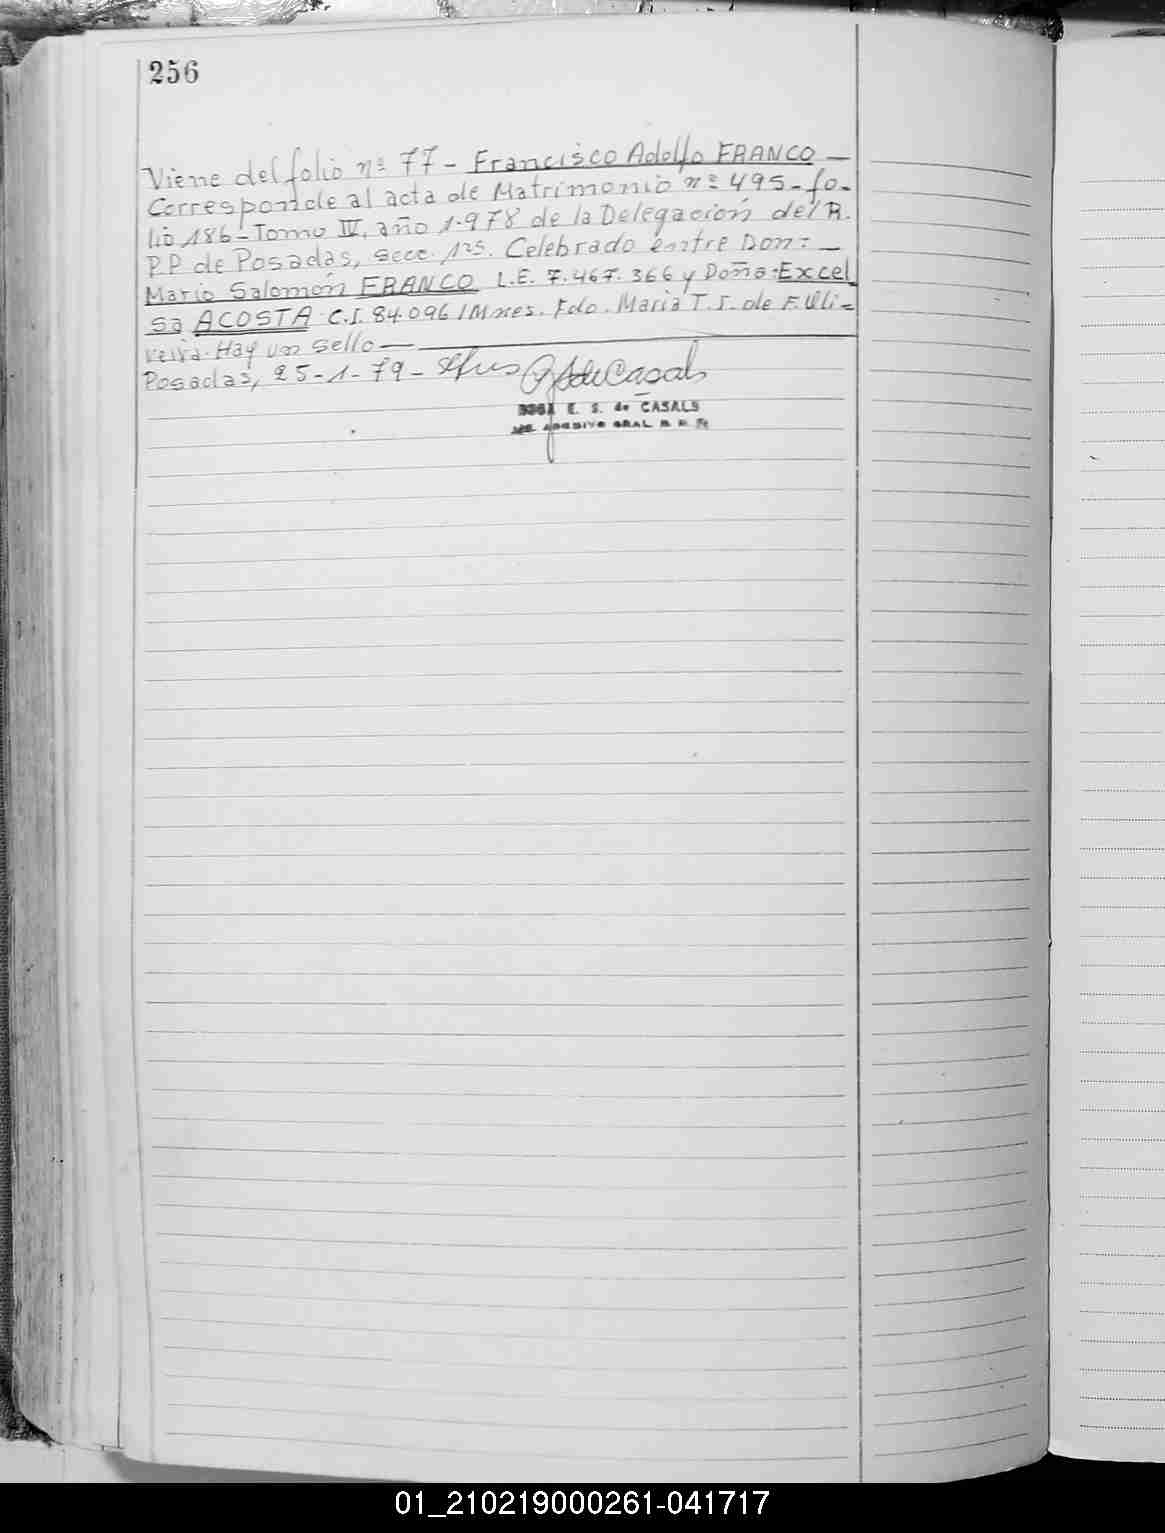 256
Viene del folio nº 77 - Francisco Adolfo FRANCO —
Corresponde al acta de Matrimonio nº 495 - fo-
lio 186 - Tomo IV, año 1.978 de la Delegación del R.
P.P de Posadas, secc. 1ra. Celebrado entre Don: —
Mario Salomón FRANCO L.E. 7.467.366 y Doña: Excel
sa ACOSTA C.I. 84.096 /Mnes. Fdo. Maria T. I. de F. Uli-
veira. Hay un sello —
Posadas, 25-1-79 -
E. S. de CASALS
01_210219000261-041717